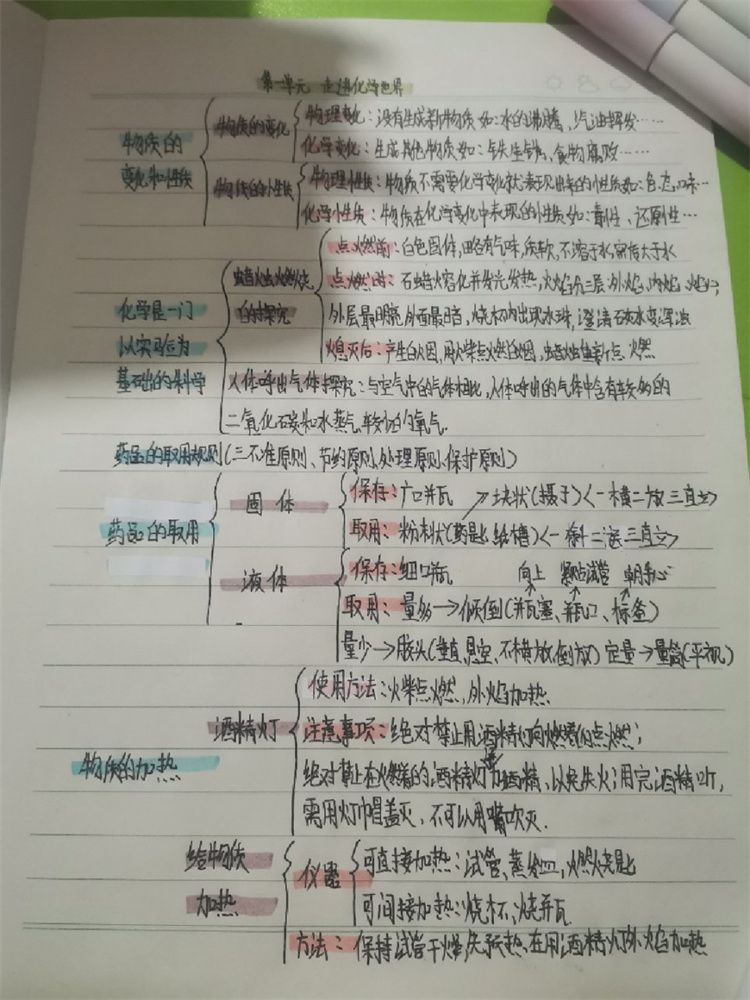 第一单元 走进化学世界
物质的变化和性质
物质的变化
物理变化：没有生成新物质如：水的沸腾、汽油挥发……
化学变化：生成其他物质如：铁生锈、食物腐败……
物质的性质
物理性质：物质不需要化学变化就表现出来的性质如：色、态、味…
化学性质：物质在化学变化中表现的性质如：毒性、还原性…
化学是一门以实验为基础的科学
蜡烛燃烧的探究
点燃前：白色固体，略有气味，质软，不溶于水，密度大于水
点燃时：石蜡熔化并发光发热，火焰分三层外焰，内焰，焰心；
外层最明亮，外面最暗，烧杯内出现水珠，澄清石灰水变浑浊
熄灭后：产生白烟，用火柴点燃白烟，蜡烛重新点燃
人体呼出气体探究：与空气中的气体相比，人体呼出的气体中含有较多的
二氧化碳和水蒸气，较少的氧气.
药品的取用规则（三不准原则、节约原则、处理原则、保护原则）
药品的取用
固体
保存：广口瓶 块状（镊子）<一横二放三直立>
取用：粉末状（药匙、纸槽）<一斜二送三直立>
液体
保存：细口瓶 向上 紧贴试管 朝手心
取用：量多→倾倒（瓶塞、瓶口、标签）
量少→胶头（垂直，悬空，不横放，倒放） 定量→量筒（平视）
物质的加热
酒精灯
使用方法：火柴点燃，外焰加热.
注意事项：绝对禁止用酒精灯向燃着的点燃；
绝对禁止在燃着的酒精灯加酒精，以免失火；用完酒精灯，
需用灯帽盖灭，不可以用嘴吹灭.
给物质加热
仪器
可直接加热：试管、蒸发皿，燃烧匙
可间接加热：烧杯、烧瓶
方法：保持试管干燥，先预热、在用酒精灯外焰加热